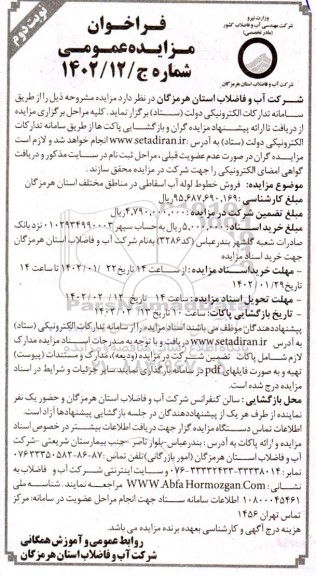 نوبت دوم
وزارت نیرو
شرکت مهندسی آب و فاضلاب کشور
(مادر تخصصی)
شرکت آب و فاضلاب استان هرمزگان
فراخوان
مزایده عمومی
شماره ج/۱۴۰۲/۱۲
شرکت آب و فاضلاب استان هرمزگان در نظر دارد مزایده مشروحه ذیل را از طریق
سامانه تدارکات الکترونیکی دولت (ستاد) برگزار نماید. کلیه مراحل برگزاری مزایده
از دریافت تا ارائه پیشنهاد مزایده گران و بازگشایی پاکت ها از طریق سامانه تدارکات
الکترونیکی دولت (ستاد) به آدرس www.setadiran.ir انجام خواهد شد و لازم است
مزایده گران در صورت عدم عضویت قبلی، مراحل ثبت نام در سایت مذکور و دریافت
گواهی امضای الکترونیکی را جهت شرکت در مزایده محقق سازند.
موضوع مزایده: فروش خطوط لوله آب اسقاطی در مناطق مختلف استان هرمزگان
مبلغ کارشناسی: ۹۵,۶۸۷,۶۹۰,۱۶۹ ریال
مبلغ تضمین شرکت در مزایده: ۴,۷۹۰,۰۰۰,۰۰۰ ریال
مبلغ خرید اسناد: ۵,۰۰۰,۰۰۰ ریال به حساب سپهر ۰۱۰۲۹۳۴۹۹۰۰۰۳ نزد بانک
صادرات شعبه گلشهر بندرعباس (کد۳۲۸۶) به نام شرکت آب و فاضلاب استان هرمزگان
جهت خرید اسناد مزایده
- مهلت خرید اسناد مزایده: از ساعت ۱۴ تاریخ ۱۴۰۲/۰۱/۲۲ تا ساعت ۱۴
تاریخ ۱۴۰۲/۰۱/۲۹
- مهلت تحویل اسناد مزایده: ساعت ۱۴ تاریخ ۱۴۰۲/۰۲/۱۲
- تاریخ بازگشایی پاکات: ساعت ۱۰ تاریخ ۱۴۰۲/۰۲/۱۳
پیشنهاددهندگان موظف می باشند اسناد مزایده را از سامانه تدارکات الکترونیکی (ستاد)
به آدرس www.setadiran.ir دریافت و با توجه به مندرجات اسناد مزایده مدارک
لازم شامل پاکات تضمین شرکت در مزایده (ودیعه)، مدارک و مستندات (پیوست)
تهیه و به صورت فایلهای pdf در سامانه بارگذاری نمایند. سایر جزئیات و شرایط در اسناد
مزایده درج شده است.
محل بازگشایی: سالن کنفرانس شرکت آب و فاضلاب استان هرمزگان و حضور یک نفر
نماینده از طرف هر یک از پیشنهاددهندگان در جلسه بازگشایی پیشنهادها آزاد است.
اطلاعات تماس دستگاه مزایده گزار جهت دریافت اطلاعات بیشتر در خصوص اسناد
مزایده و ارائه پاکات به آدرس: بندرعباس-بلوار ناصر -جنب بیمارستان شریعتی -شرکت
آب و فاضلاب استان هرمزگان (امور بازرگانی) تلفن تماس: ۸۷-۸۶-۰۷۶۳۳۳۵۰۵۸۲
نمابر: ۳۳۳۳۸۰۱۴-۳۳۳۳۲۴۳۳-۰۷۶ و سایت اینترنتی شرکت آب و فاضلاب به
نشانی: WWW.Abfa Hormozgan.Com مراجعه نمایند. شناسه ملی
۱۰۸۰۰۰۴۵۴۶۱ اطلاعات سامانه ستاد جهت انجام مراحل عضویت در سامانه: مرکز
تماس تهران ۱۴۵۶
هزینه درج آگهی و کارشناسی بعهده برنده مزایده می باشد.
روابط عمومی و آموزش همگانی
شرکت آب و فاضلاب استان هرمزگان